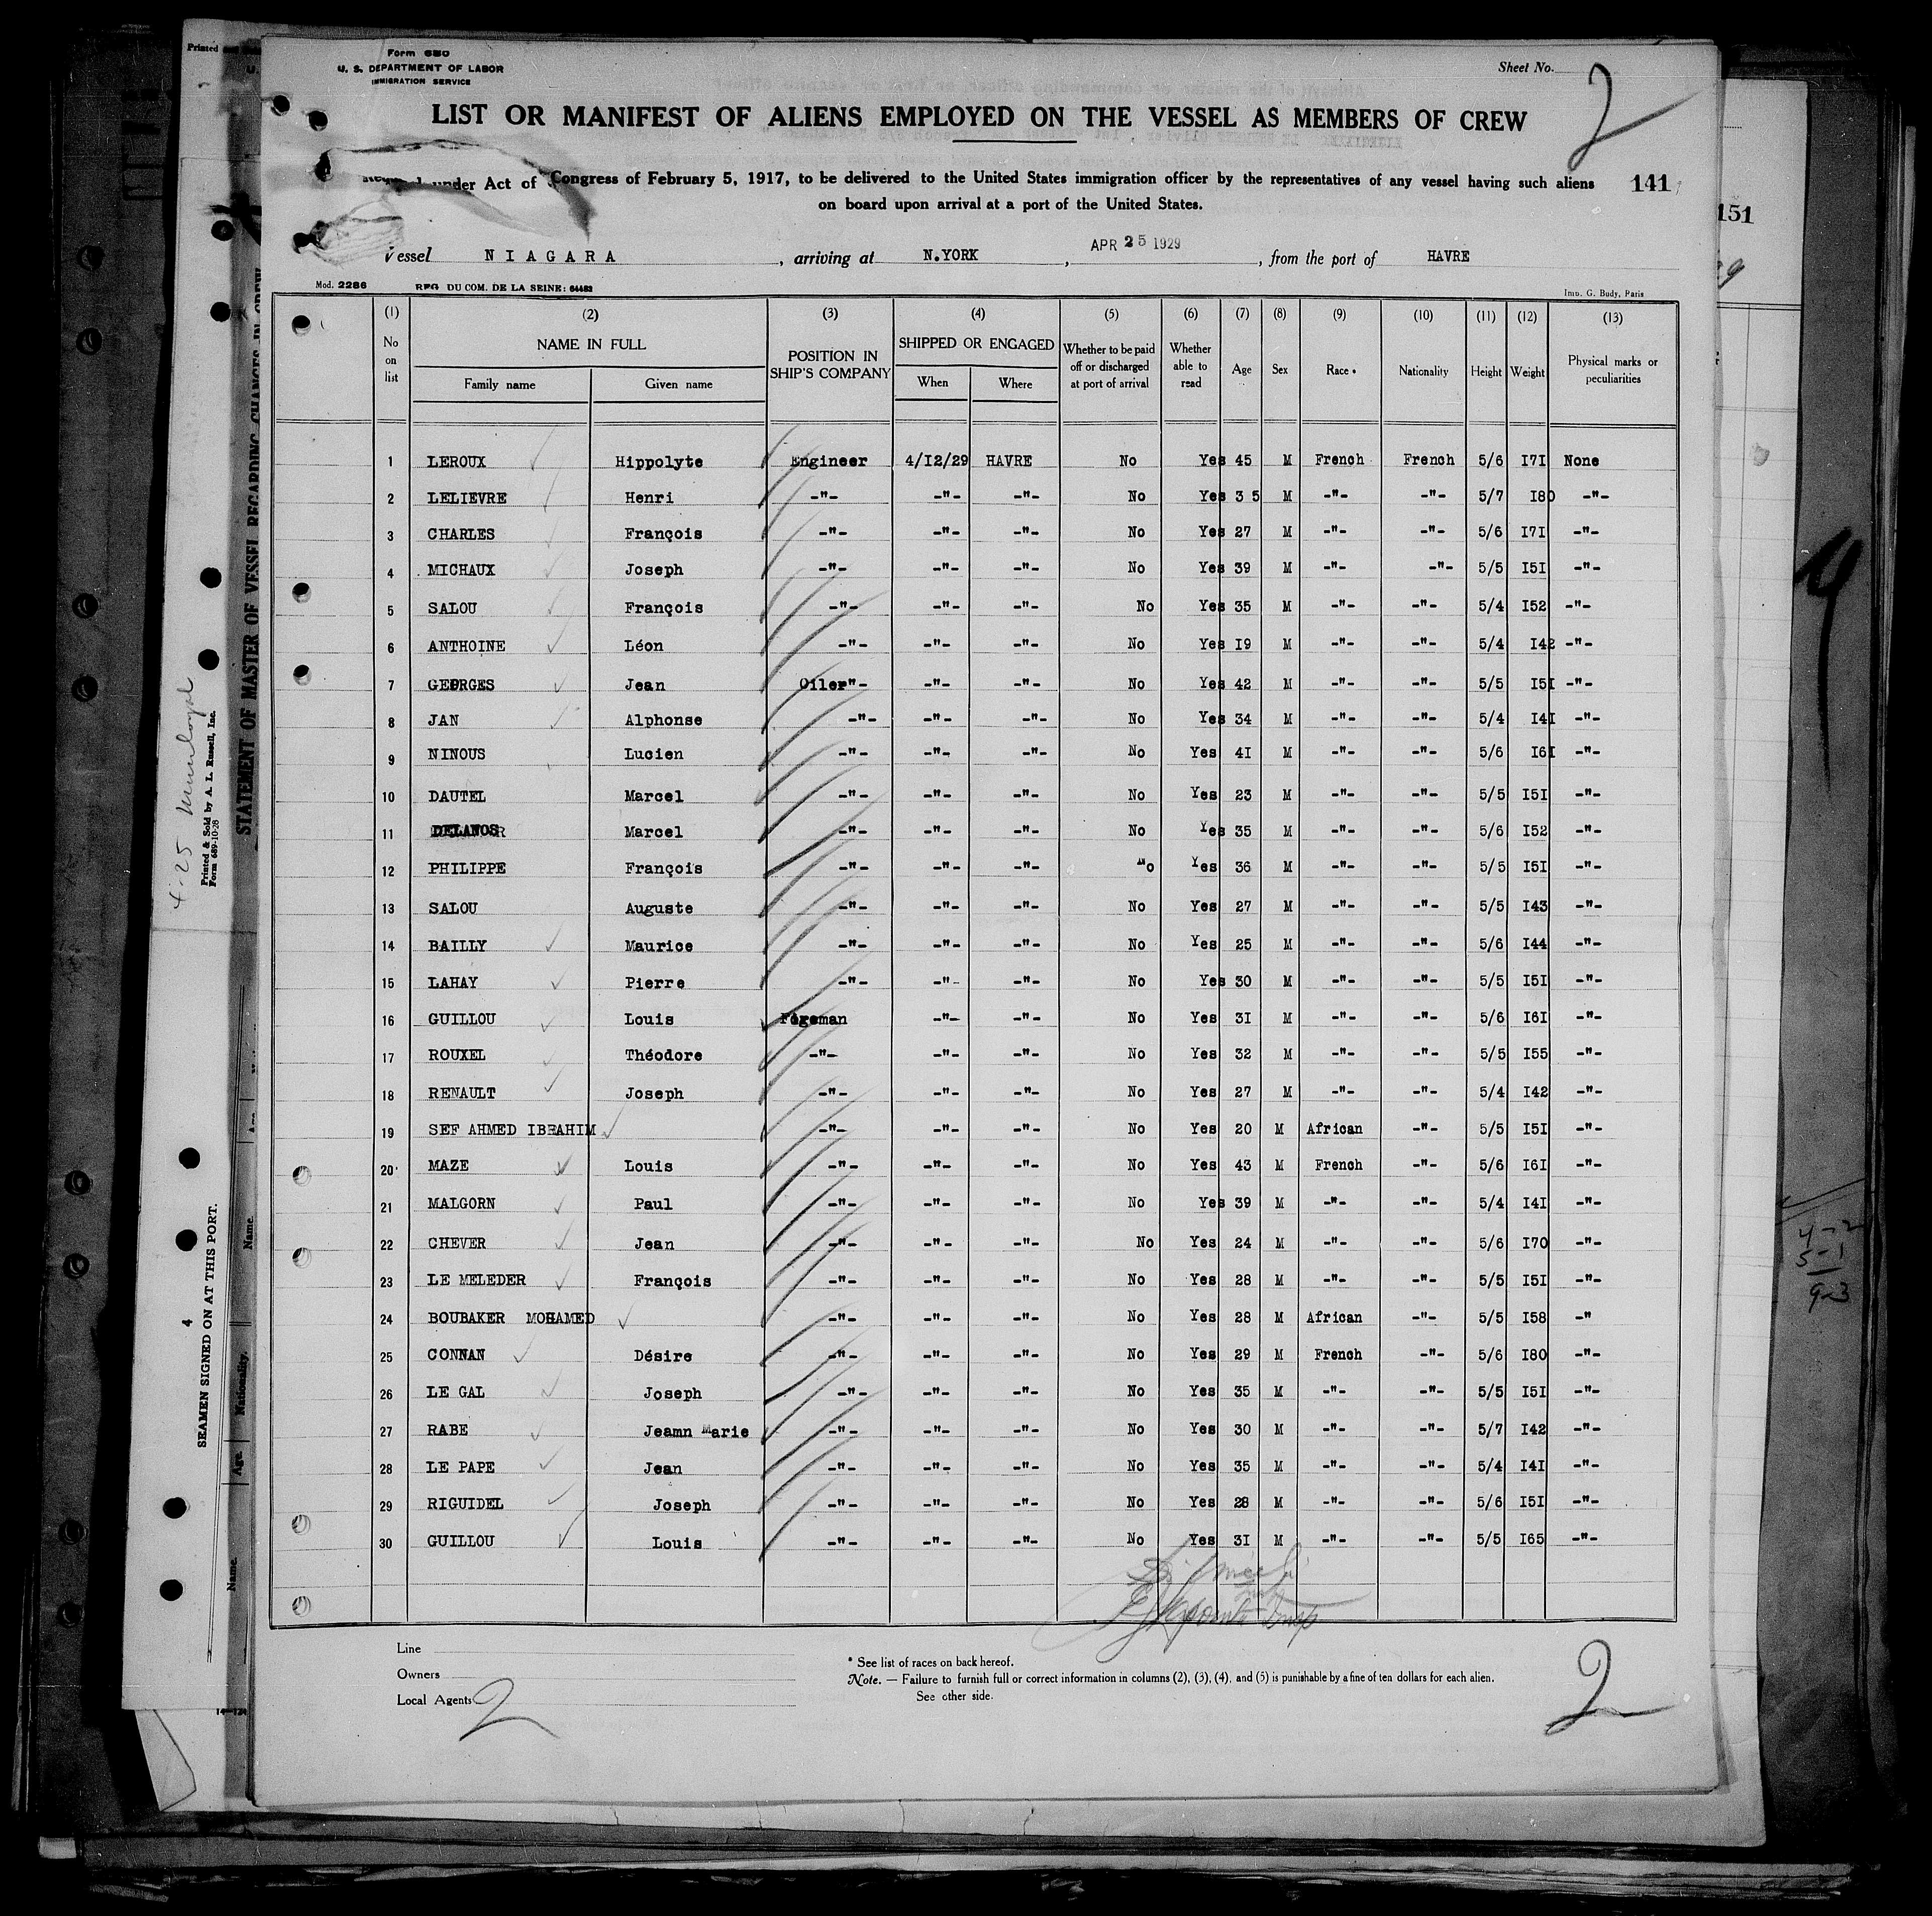 Form 680
U. S. DEPARTMENT OF LABOR
IMMIGRATION SERVICE
Sheet No. 2
LIST OR MANIFEST OF ALIENS EMPLOYED ON THE VESSEL AS MEMBERS OF CREW
under Act of Congress of February 5, 1917, to be delivered to the United States immigration officer by the representatives of any vessel having such aliens
141
on board upon arrival at a port of the United States.
Vessel NIAGARA, arriving at N.YORK, APR 25 1929, from the port of HAVRE
Mod. 2286 REG. DU COM. DE LA SEINE: 64483 Imp. G. Budy, Paris
(1) (2) (3) (4) (5) (6) (7) (8) (9) (10) (11) (12) (13)
No on list NAME IN FULL Family name Given name POSITION IN SHIP'S COMPANY SHIPPED OR ENGAGED When Where Whether to be paid off or discharged at port of arrival Whether able to read Age Sex Race * Nationality Height Weight Physical marks or peculiarities
1 LEROUX Hippolyte Engineer 4/I2/29 HAVRE No Yes 45 M French French 5/6 I7I None
2 LELIEVRE Henri -"- -"- -"- No Yes 3 5 M -"- -"- 5/7 I80 -"-
3 CHARLES François -"- -"- -"- No Yes 27 M -"- -"- 5/6 I7I -"-
4 MICHAUX Joseph -"- -"- -"- No Yes 39 M -"- -"- 5/5 I5I -"-
5 SALOU François -"- -"- -"- No Yes 35 M -"- -"- 5/4 I52 -"-
6 ANTHOINE Léon -"- -"- -"- No Yes I9 M -"- -"- 5/4 I42 -"-
7 GEORGES Jean Oiler"- -"- -"- No Yes 42 M -"- -"- 5/5 I5I -"-
8 JAN Alphonse -"- -"- -"- No Yes 34 M -"- -"- 5/4 I4I -"-
9 NINOUS Lucien -"- -"- -"- No Yes 4I M -"- -"- 5/6 I6I -"-
10 DAUTEL Marcel -"- -"- -"- No Yes 23 M -"- -"- 5/5 I5I -"-
11 DELANOS Marcel -"- -"- -"- No Yes 35 M -"- -"- 5/6 I52 -"-
12 PHILIPPE François -"- -"- -"- No Yes 36 M -"- -"- 5/5 I5I -"-
13 SALOU Auguste -"- -"- -"- No Yes 27 M -"- -"- 5/5 I43 -"-
14 BAILLY Maurice -"- -"- -"- No Yes 25 M -"- -"- 5/6 I44 -"-
15 LAHAY Pierre -"- -"- -"- No Yes 30 M -"- -"- 5/5 I5I -"-
16 GUILLOU Louis Foreman -"- -"- No Yes 3I M -"- -"- 5/6 I6I -"-
17 ROUXEL Théodore -"- -"- -"- No Yes 32 M -"- -"- 5/5 I55 -"-
18 RENAULT Joseph -"- -"- -"- No Yes 27 M -"- -"- 5/4 I42 -"-
19 SEF AHMED IBRAHIM -"- -"- -"- No Yes 20 M African -"- 5/5 I5I -"-
20 MAZE Louis -"- -"- -"- No Yes 43 M French -"- 5/6 I6I -"-
21 MALGORN Paul -"- -"- -"- No Yes 39 M -"- -"- 5/4 I4I -"-
22 CHEVER Jean -"- -"- -"- No Yes 24 M -"- -"- 5/6 I70 -"-
23 LE MELEDER François -"- -"- -"- No Yes 28 M -"- -"- 5/5 I5I -"-
24 BOUBAKER MOHAMED -"- -"- -"- No Yes 28 M African -"- 5/5 I58 -"
25 CONNAN Désire -"- -"- -"- No Yes 29 M French -"- 5/6 I80 -"-
26 LE GAL Joseph -"- -"- -"- No Yes 35 M -"- -"- 5/5 I5I -"-
27 RABE Jeamn Marie -"- -"- -"- No Yes 30 M -"- -"- 5/7 I42 -"-
28 LE PAPE Jean -"- -"- -"- No Yes 35 M -"- -"- 5/4 I4I -"-
29 RIGUIDEL Joseph -"- -"- -"- No Yes 28 M -"- -"- 5/6 I5I -"-
30 GUILLOU Louis -"- -"- -"- No Yes 3I M -"- -"- 5/5 I65 -"-
Line
Owners
Local Agents
2
* See list of races on back hereof.
Note. — Failure to furnish full or correct information in columns (2), (3), (4), and (5) is punishable by a fine of ten dollars for each alien.
See other side.
2
Printed
4-25
Printed & Sold by A. L. Russell, Inc.
Form 689-10-28
STATEMENT OF MASTER OF VESSEL REGARDING CHANGES IN CREW
4
SEAMEN SIGNED ON AT THIS PORT.
Name.
Nationality.
Age.
Name.
151
4-2
5-1
9-3